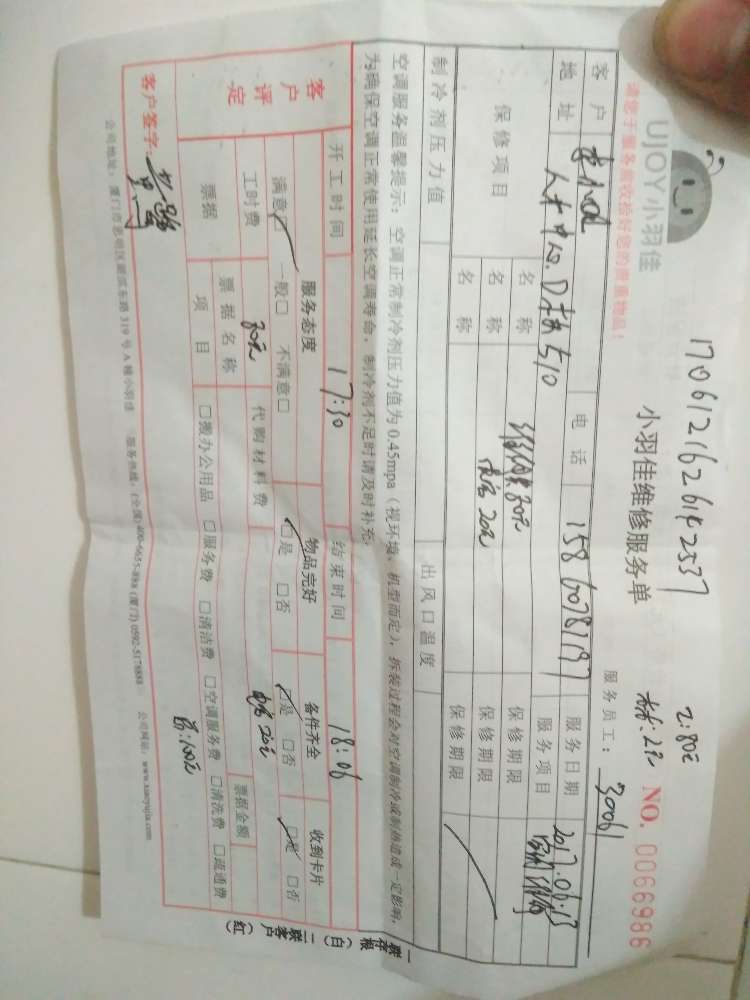 1706121626142537
UJOY小羽佳
小羽佳维修服务单
NO. 0066986
请您于服务前收拾好您的贵重物品!
服务员工: 30061
客户 电话 服务日期 2017.06.13
地址 人才中心. D栋510 服务项目
保修项目 名称 保修期限
名称 保修期限
名称 保修期限
制冷剂压力值 出风口温度
空调服务温馨提示: 空调正常制冷剂压力值为 0.45mpa (视环境、机型而定), 拆装过程会对空调制冷或制热造成一定影响,
为确保空调正常使用延长空调寿命, 制冷剂不足时请及时补充。
客户评定
开工时间 17:30 结束时间 18:06
服务态度 物品完好 备件齐全 收到卡片
满意□ 一般□ 不满意□ □是 □否 □是 □否 □是 □否
工时费 80元 代购材料费 20元
票据 票据名称 票据金额
项目 □搬办公用品 □服务费 □清洁费 □空调服务费 □清洗费 □疏通费
客户签字:
公司地址: 厦门市思明区湖滨东路 319 号 A 幢小羽佳 服务热线: (全国) 400-6655-888 (厦门) 0592-5178888 公司网站: www.xiaoyujia.com
一联存根(白) 二联客户(红)